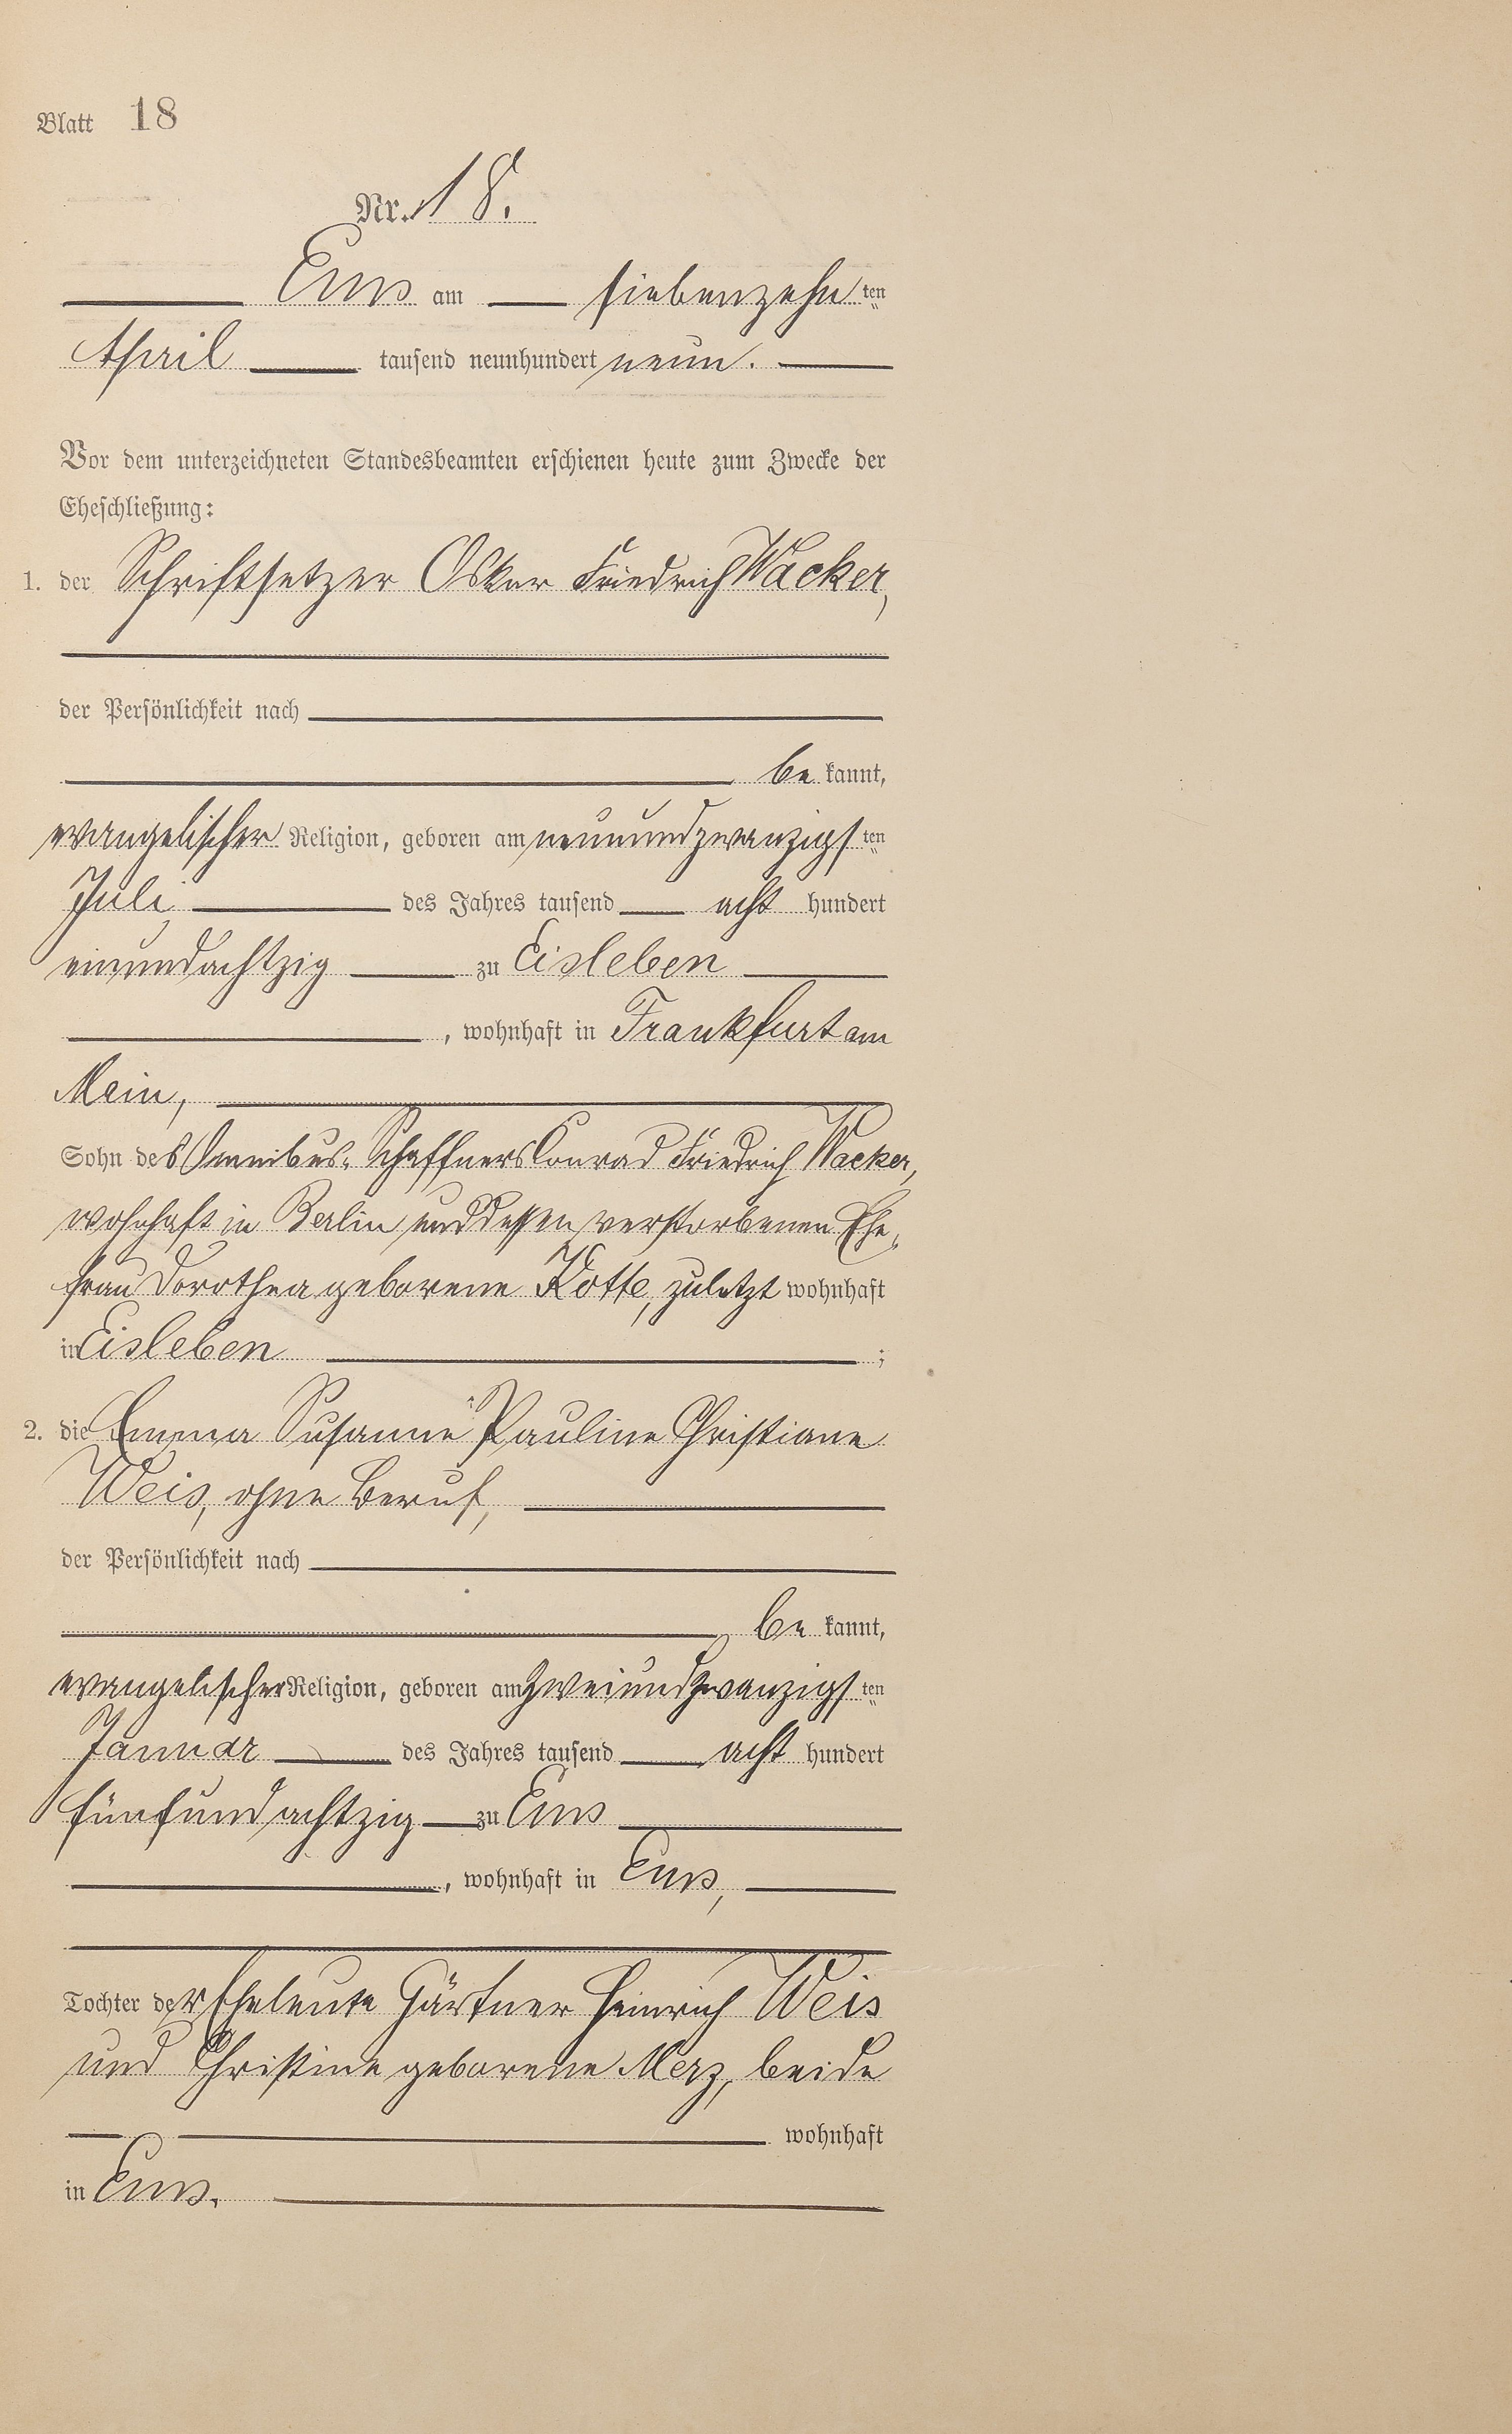 Blatt 18
Nr. 18.
Ems am siebenzehnten
April tausend neunhundert neun.
Vor dem unterzeichneten Standesbeamten erschienen heute zum Zwecke der
Eheschließung:
1. der Schriftsetzer Oskar Friedrich Wacker,
der Persönlichkeit nach
bekannt,
evangelischer Religion, geboren am neunundzwanzigsten
Juli des Jahres tausend acht hundert
einundachtzig zu Eisleben
, wohnhaft in Frankfurt am
Main,
Sohn des Omnibus-Schaffners Conrad Friedrich Wacker,
wohnhaft in Berlin und dessen verstorbenen Ehe-
frau Dorothea geborene Kotte, zuletzt wohnhaft
in Eisleben ;
2. die Emma Susanne Pauline Christiane
Weis, ohne Beruf,
der Persönlichkeit nach
bekannt,
evangelischer Religion, geboren am zweiundzwanzigsten
Januar des Jahres tausend acht hundert
fünfundachtzig zu Ems
, wohnhaft in Ems,
Tochter der Eheleute Gärtner Heinrich Weis
und Christine geborene Merz, beide
wohnhaft
in Ems.